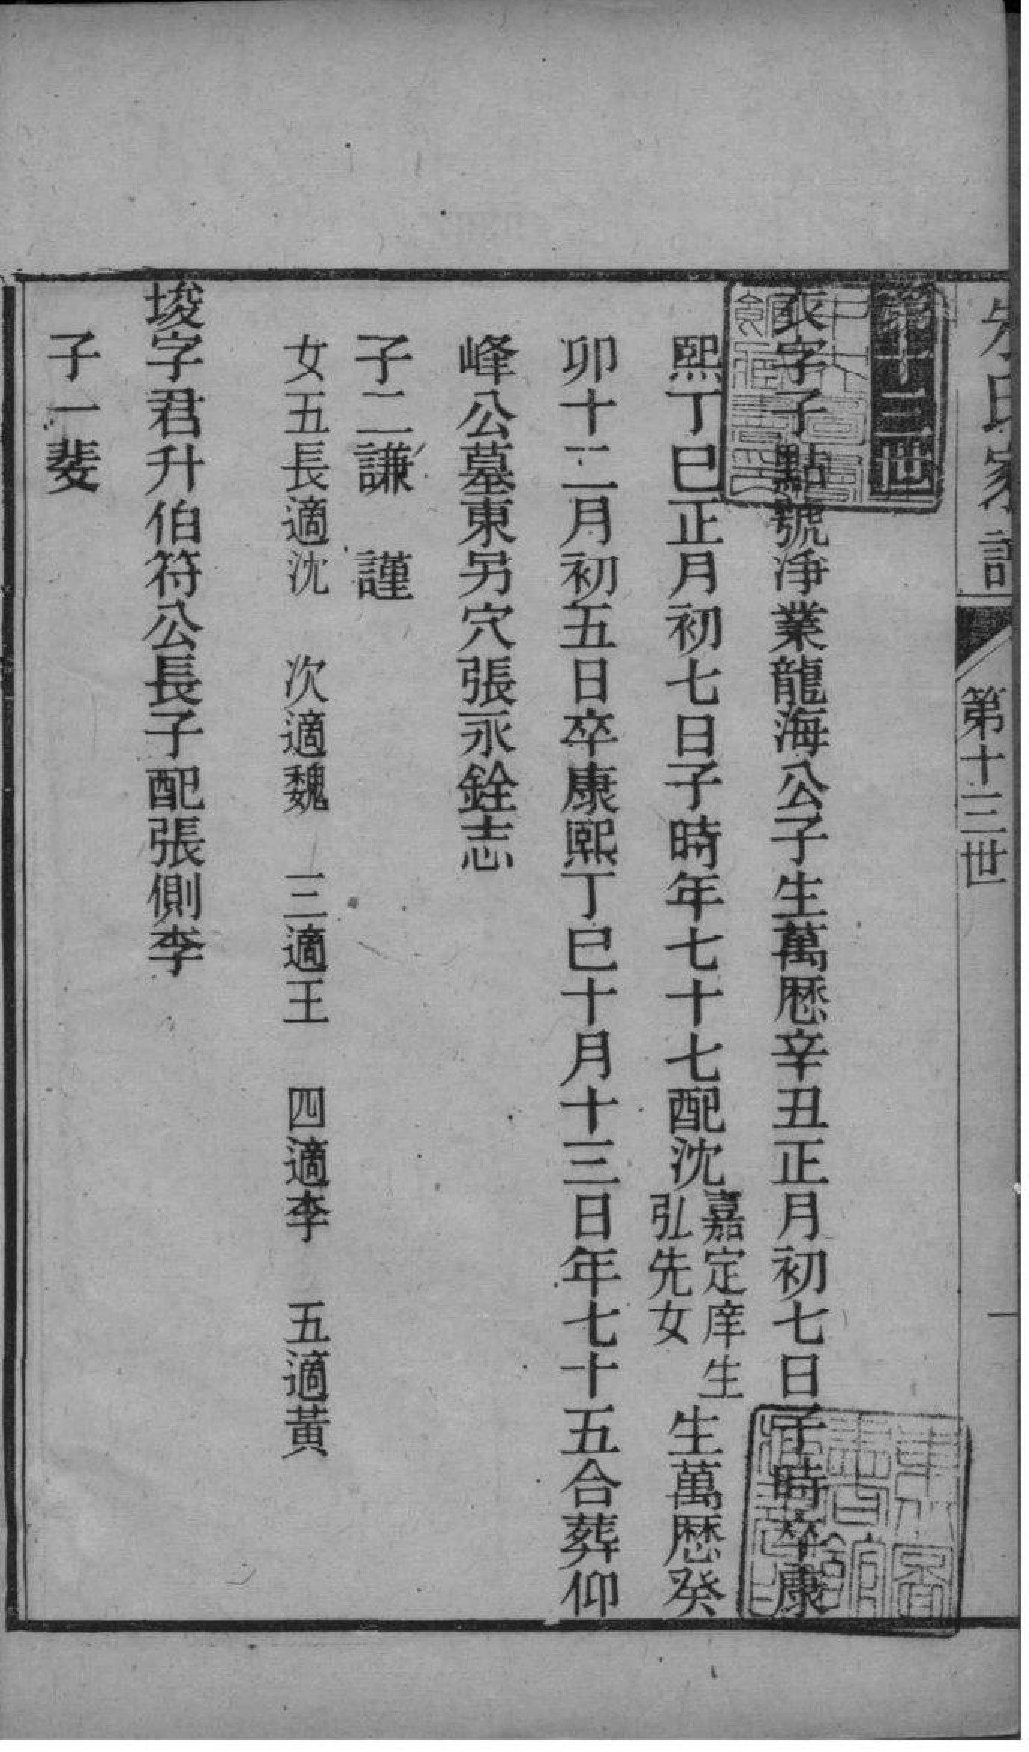 氏家
第十三世
一
第十三世
字子點號淨業龍海公子生萬厯辛丑正月初七日子時卒康
熙丁巳正月初七日子時年七十七配沈嘉定庠生弘先女生萬厯癸
卯十二月初五日卒康熙丁巳十月十三日年七十五合葬仰
峰公墓東另穴張永銓志
子二謙 謹
女五長適沈 次適魏 三適王 四適李 五適黃
埈字君升伯符公長子配張側李
子一斐